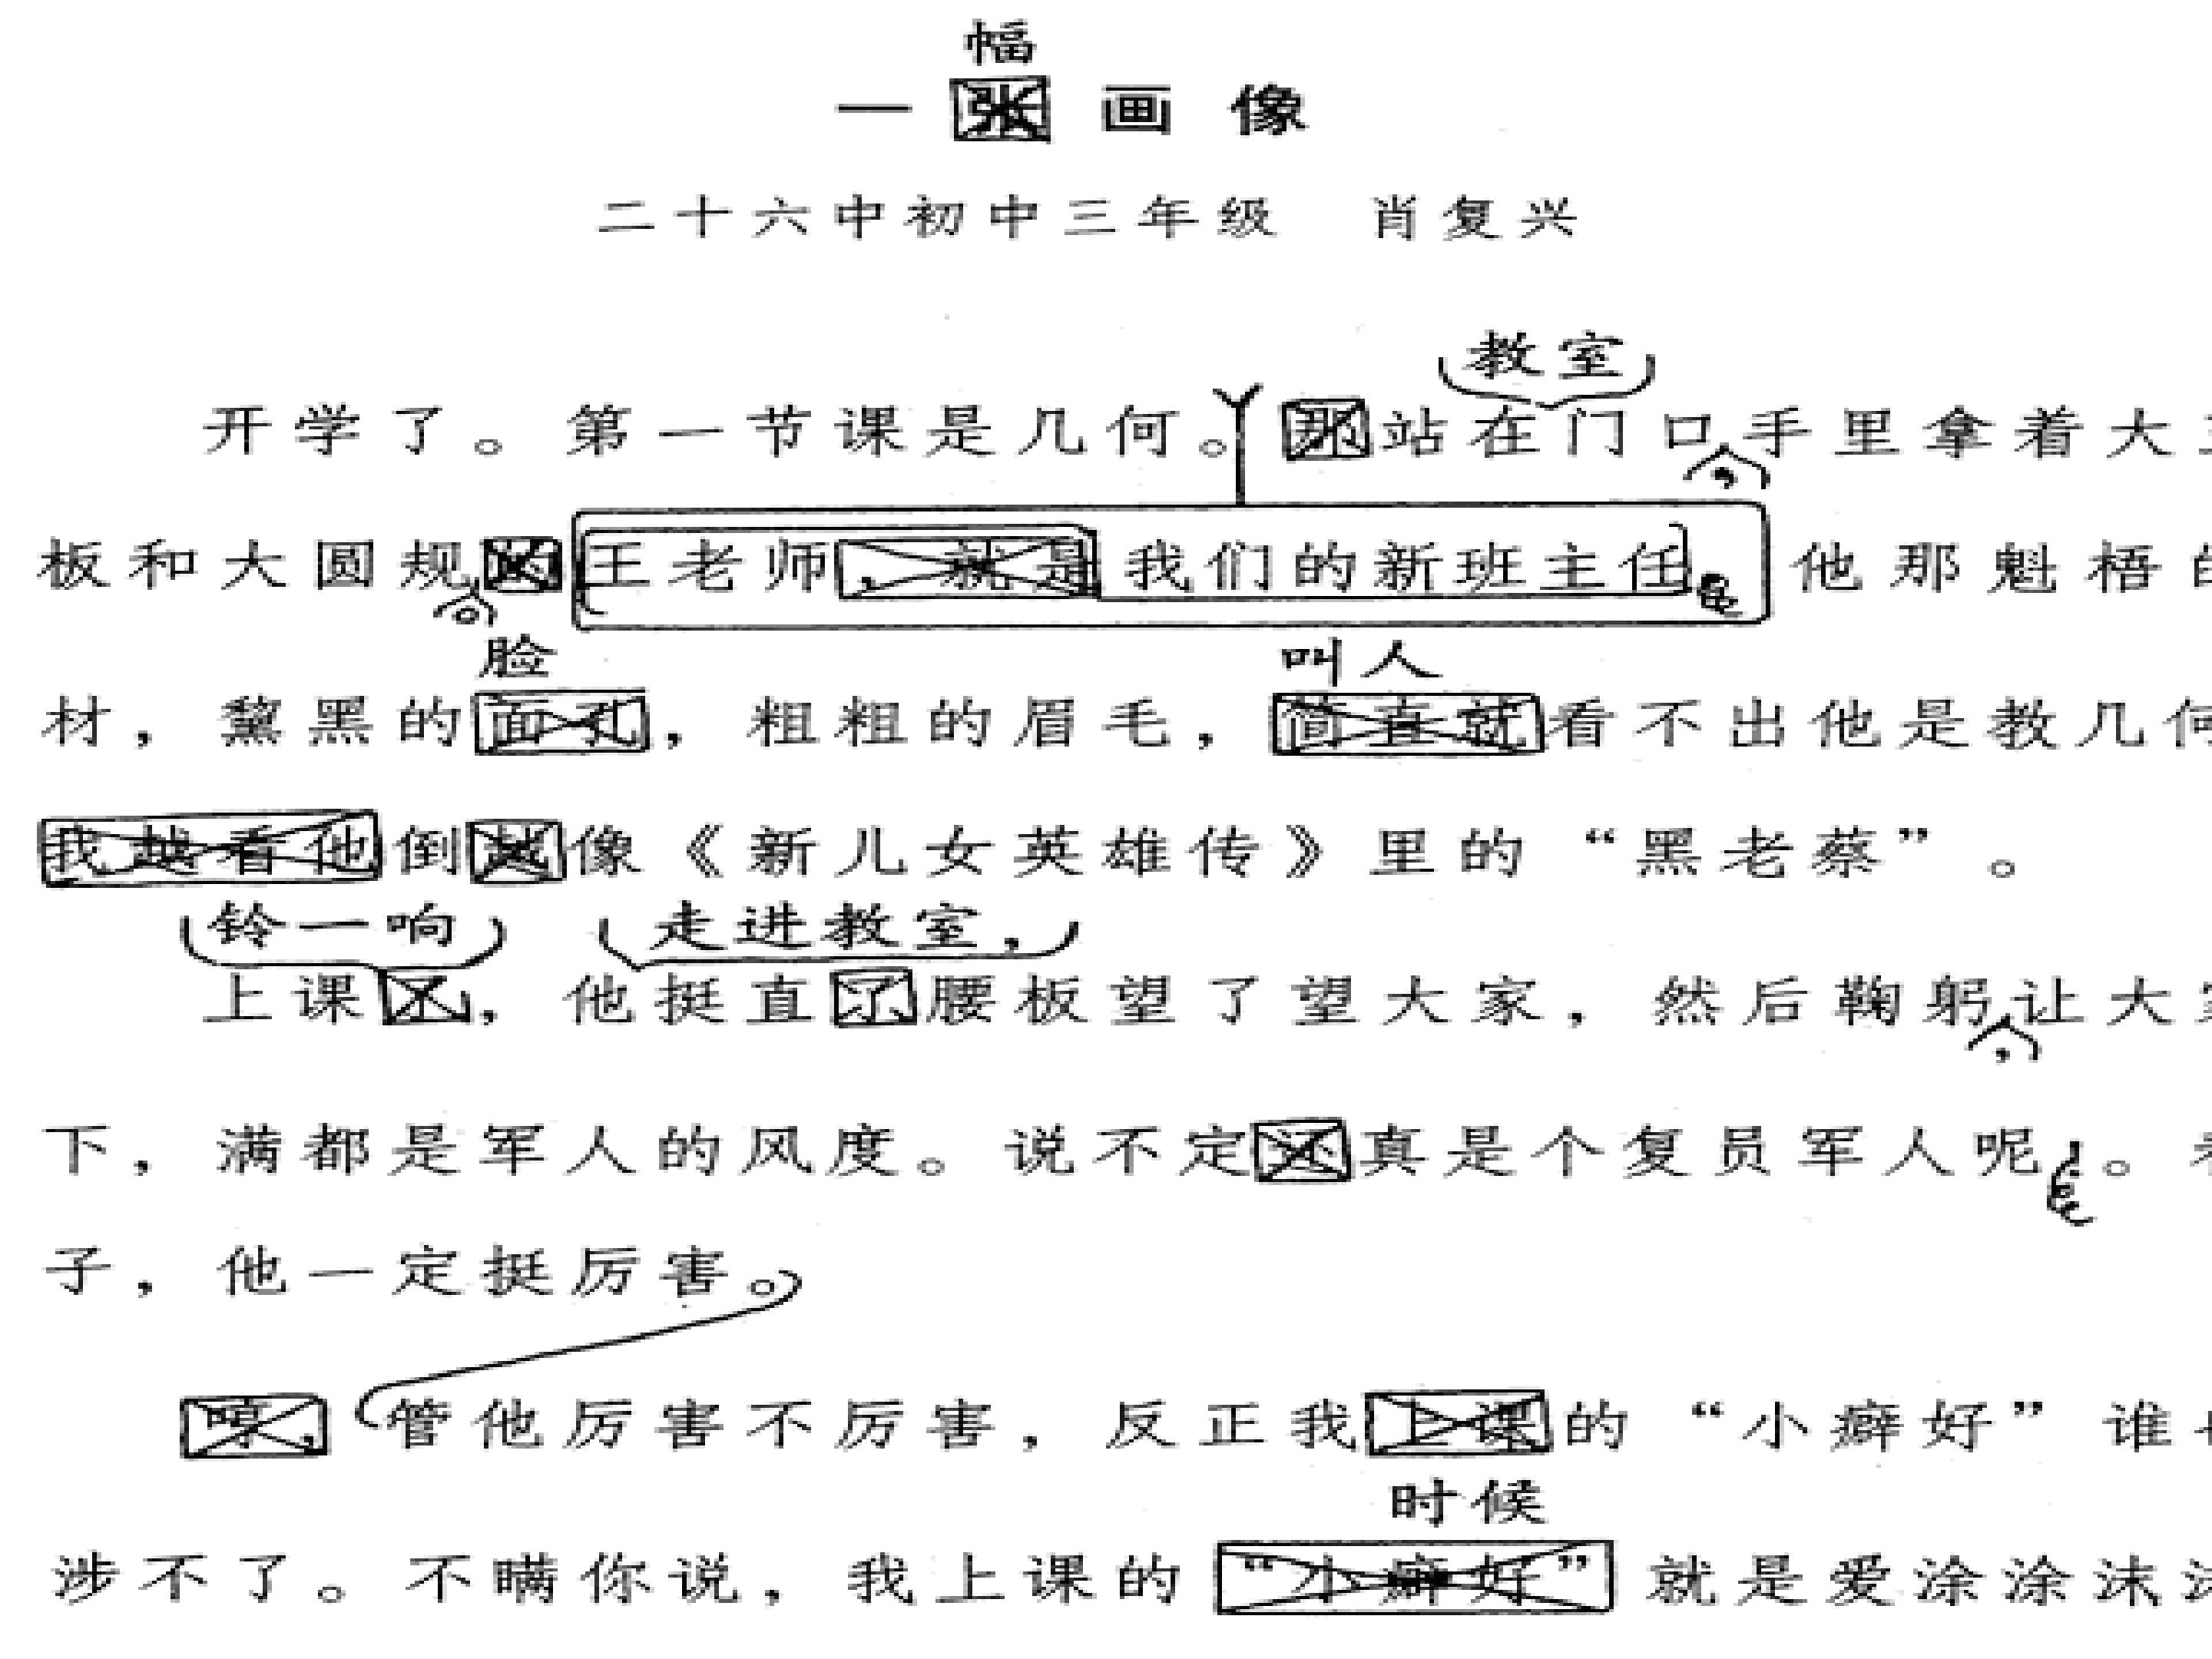 幅
一张画像
二十六中初中三年级 肖复兴
教室
开学了。第一节课是几何。那站在门口,手里拿着大
板和大圆规的。王老师,就是我们的新班主任。他那魁梧的
脸 叫人
材，黧黑的面孔，粗粗的眉毛，简直就看不出他是教几何
我越看他倒越像《新儿女英雄传》里的“黑老蔡”。
铃一响 走进教室，
上课了，他挺直了腰板望了望大家，然后鞠躬，让大家
下，满都是军人的风度。说不定还真是个复员军人呢！。看
子，他一定挺厉害。
哼，管他厉害不厉害，反正我上课的“小癖好”谁也
时候
涉不了。不瞒你说，我上课的“小癖好”就是爱涂涂沫沫